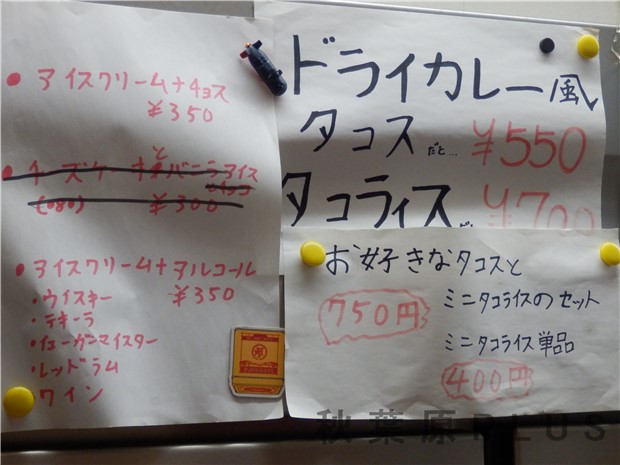 ● アイスクリーム+チョス
¥350
● チーズケーキとバニラアイス
¥300
● アイスクリーム+アルコール
・ウイスキー ¥350
・テキーラ
・イェーガンマイスター
・レッドラム
・ワイン
ドライカレー風
タコス だと… ¥550
タコライス ¥700
お好きなタコスと
ミニタコライスのセット
750円
ミニタコライス単品
400円
秋葉原PLUS